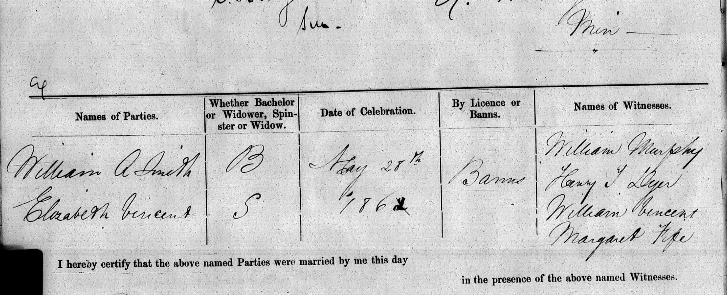 Sec.
Min
Names of Parties. Whether Bachelor or Widower, Spinster or Widow. Date of Celebration. By Licence or Banns. Names of Witnesses.
William A Smith B May 28th Banns William Murphy
Henry T Dyer
Elizabeth Vincent S 186 William Vincent
Margaret Fife
I hereby certify that the above named Parties were married by me this day
in the presence of the above named Witnesses.